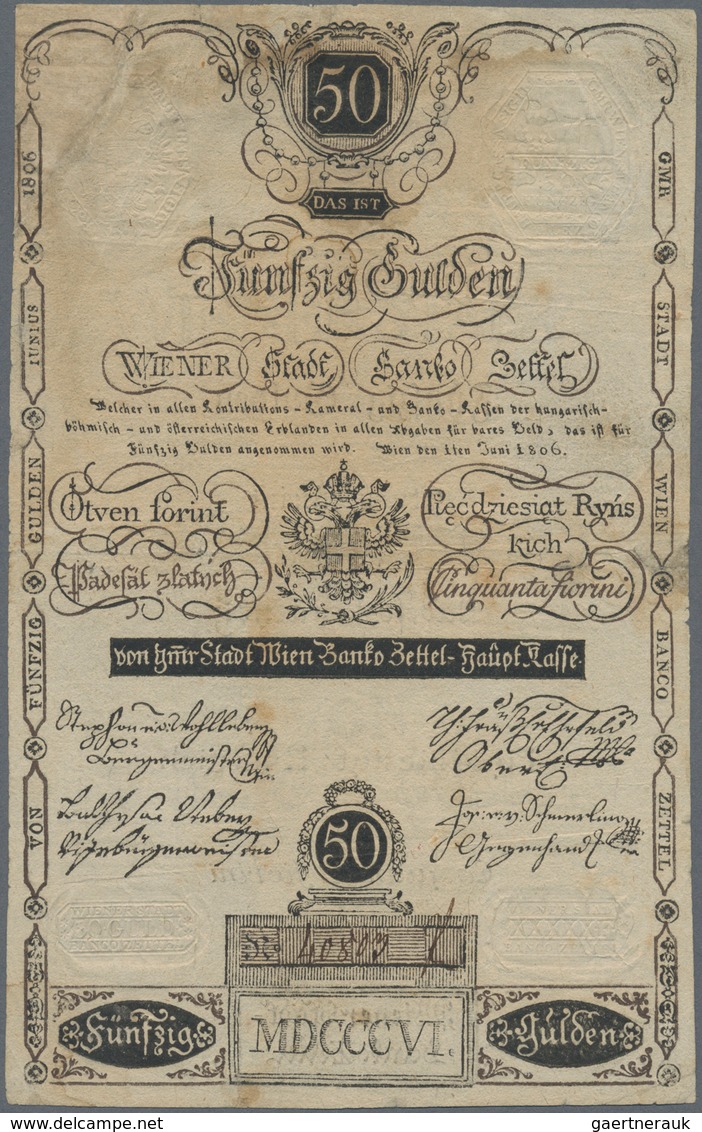 50
DAS IST
Fünfzig Gulden
WIENER Stadt Banko Zettel
Welcher in allen Kontributions - Kameral - und Banko - Kassen der hungarisch-
böhmisch - und österreichischen Erblanden in allen Abgaben für bares Geld, das ist für
Fünfzig Gulden angenommen wird. Wien den 1ten Juni 1806.
Ötven forint
Pięćdziesiąt Ryńs
kich
Padesát zlatých
Cinquanta fiorini
von Gmr Stadt Wien Banko Zettel - Haupt Kasse.
Bürgermeister
Vizebürgermeister
50
No 40803
MDCCCVI.
Fünfzig
Gulden
VON FÜNFZIG GULDEN IUNIUS 1806
GMR STADT WIEN BANCO ZETTEL
gaertnerauk